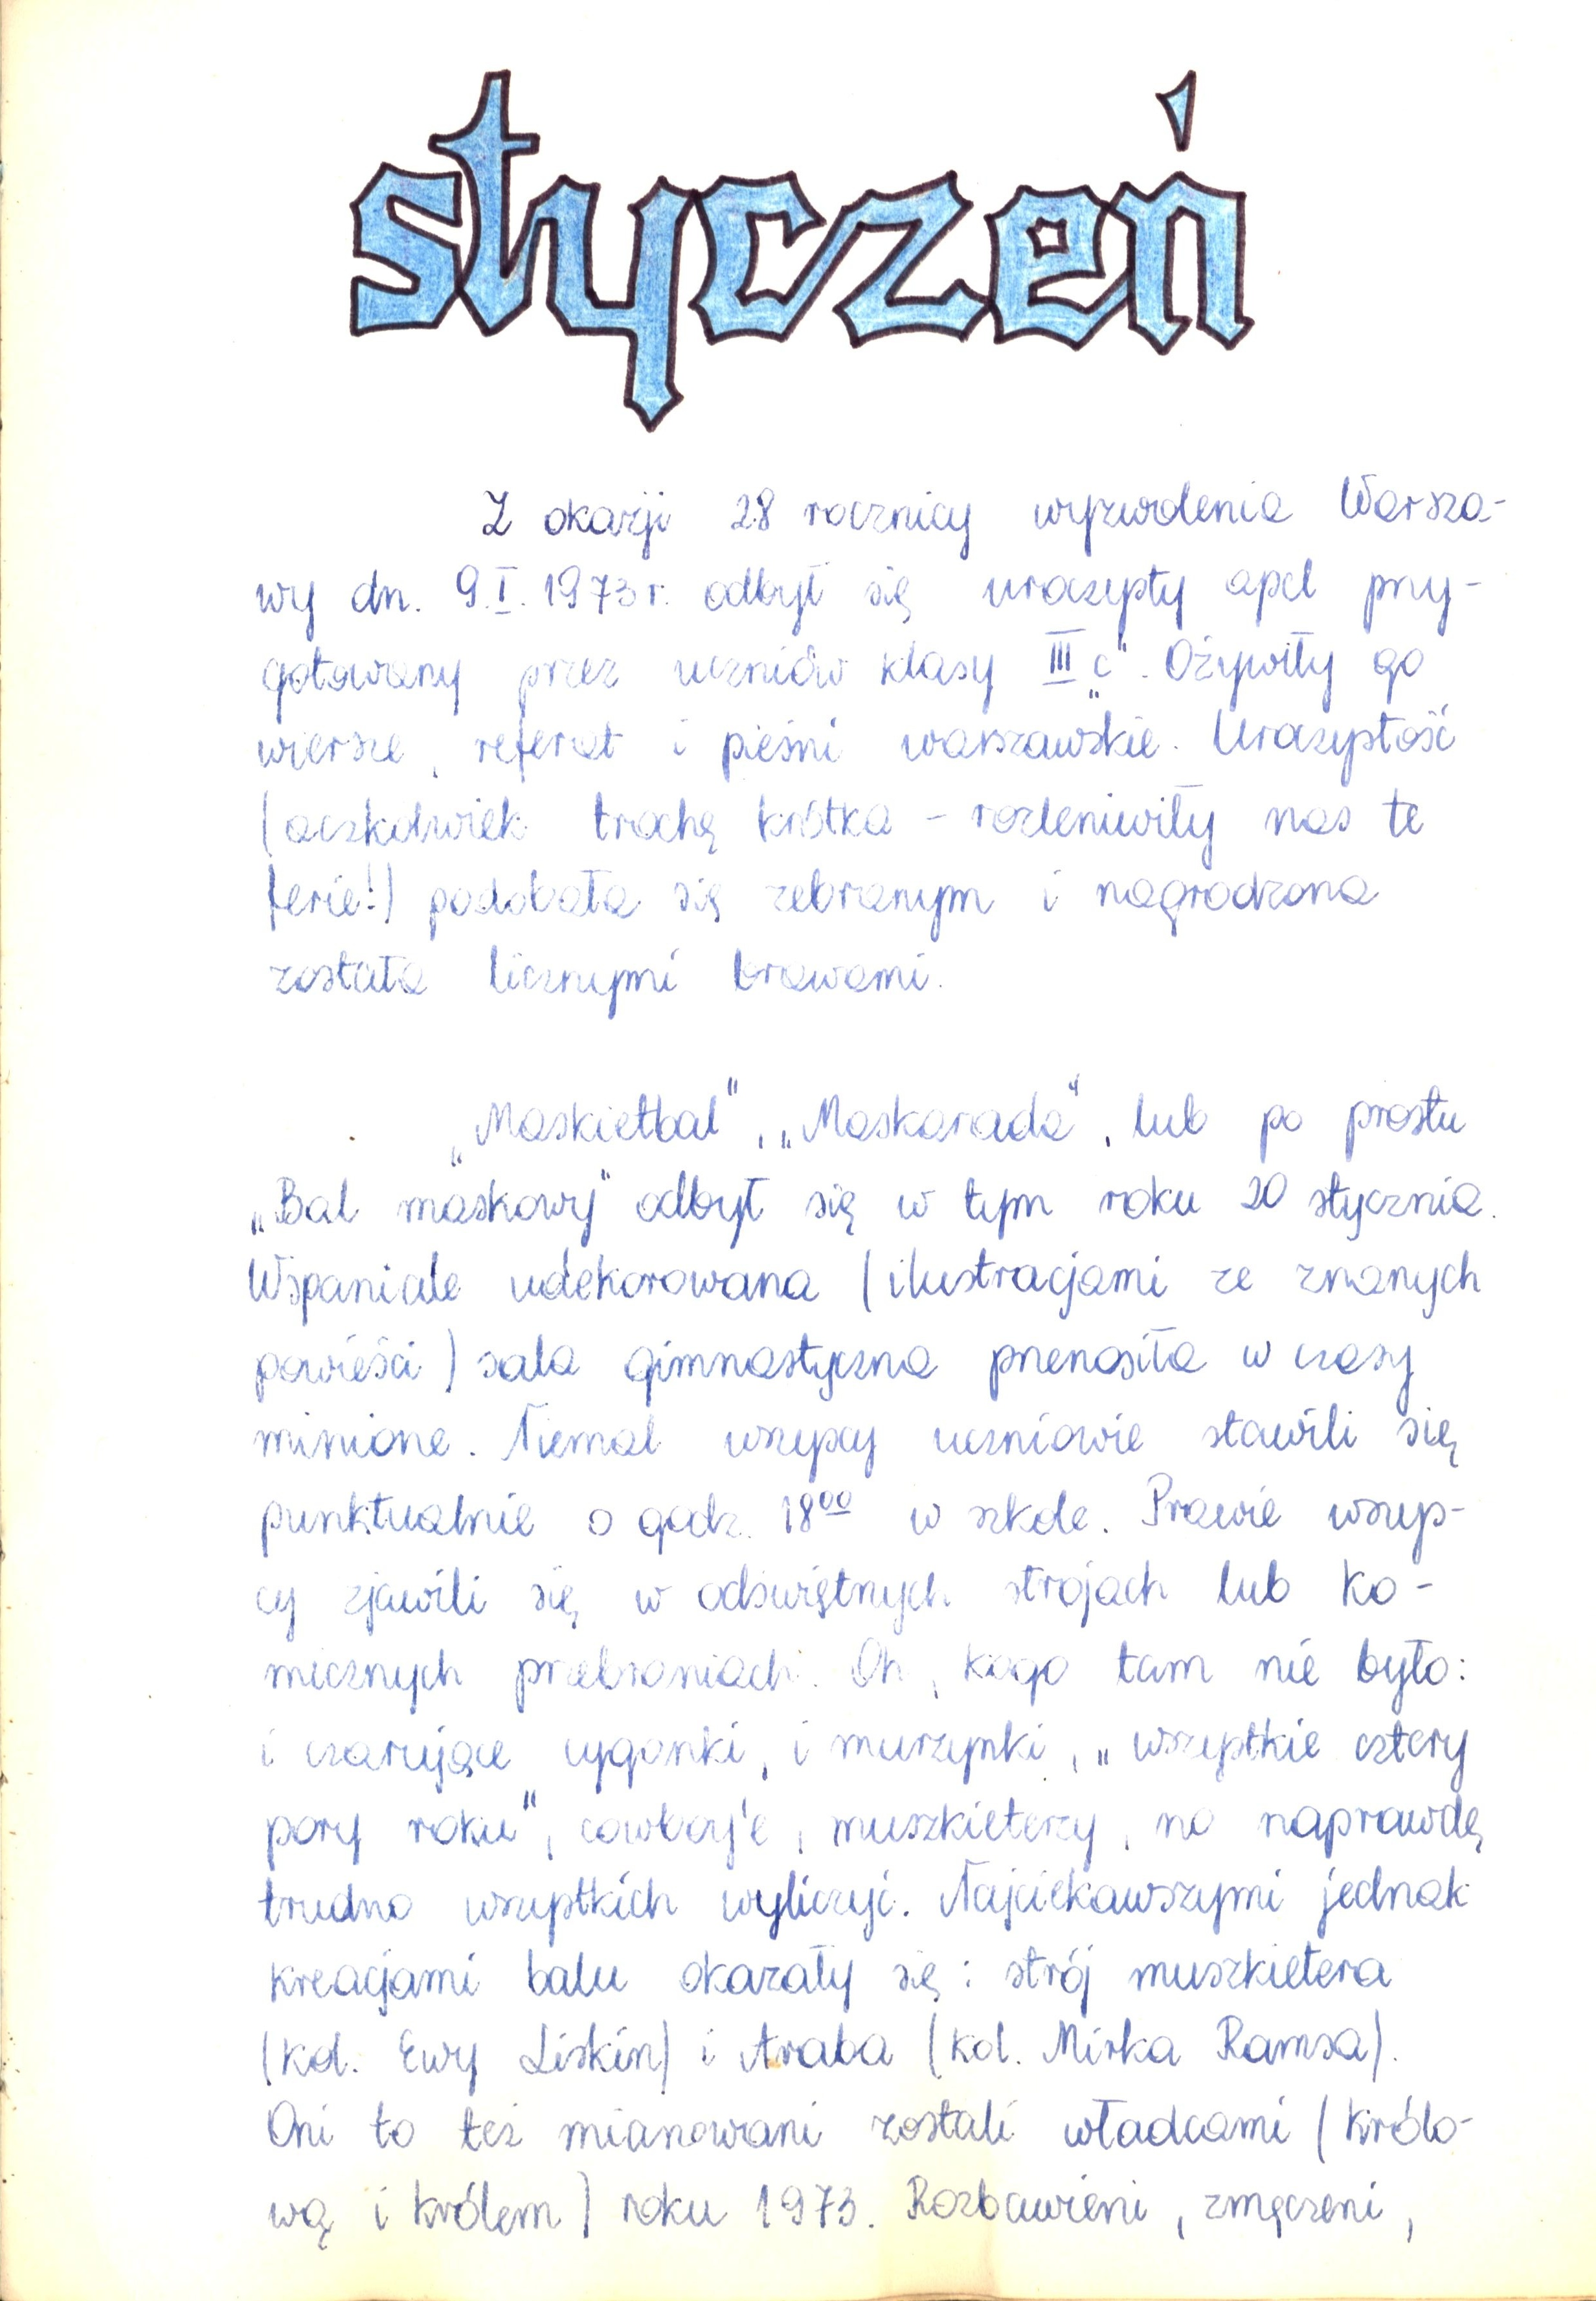 styczeń
Z okazji 28 rocznicy wyzwolenia Warsza-
wy dn. 9.I.1973r. odbył się uroczysty apel przy-
gotowany przez uczniów klasy III „c". Ożywiły go
wiersze, referat i pieśni warszawskie. Uroczystość
(aczkolwiek trochę krótka - rozleniwiły nas te
ferie!) podobała się zebranym i nagrodzona
została licznymi brawami.
„Maskietbal", „Maskarada", lub po prostu
„Bal maskowy" odbył się w tym roku 20 stycznia.
Wspaniale udekorowana (ilustracjami ze znanych
powieści) sala gimnastyczna przenosiła w czasy
minione. Niemal wszyscy uczniowie stawili się
punktualnie o godz. 18⁰⁰ w szkole. Prawie wszys-
cy zjawili się w odświętnych strojach lub ko-
micznych przebraniach. Oh, kogo tam nie było:
i czarujące cyganki, i murzynki, „wszystkie cztery
pory roku", cowboy'e, muszkieterzy, no naprawdę
trudno wszystkich wyliczyć. Najciekawszymi jednak
kreacjami balu okazały się: strój muszkietera
(kol. Ewy Liskin) i Araba (kol. Mirka Ramsa).
Oni to też mianowani zostali władcami (królo-
wą i królem) roku 1973. Rozbawieni, zmęczeni,